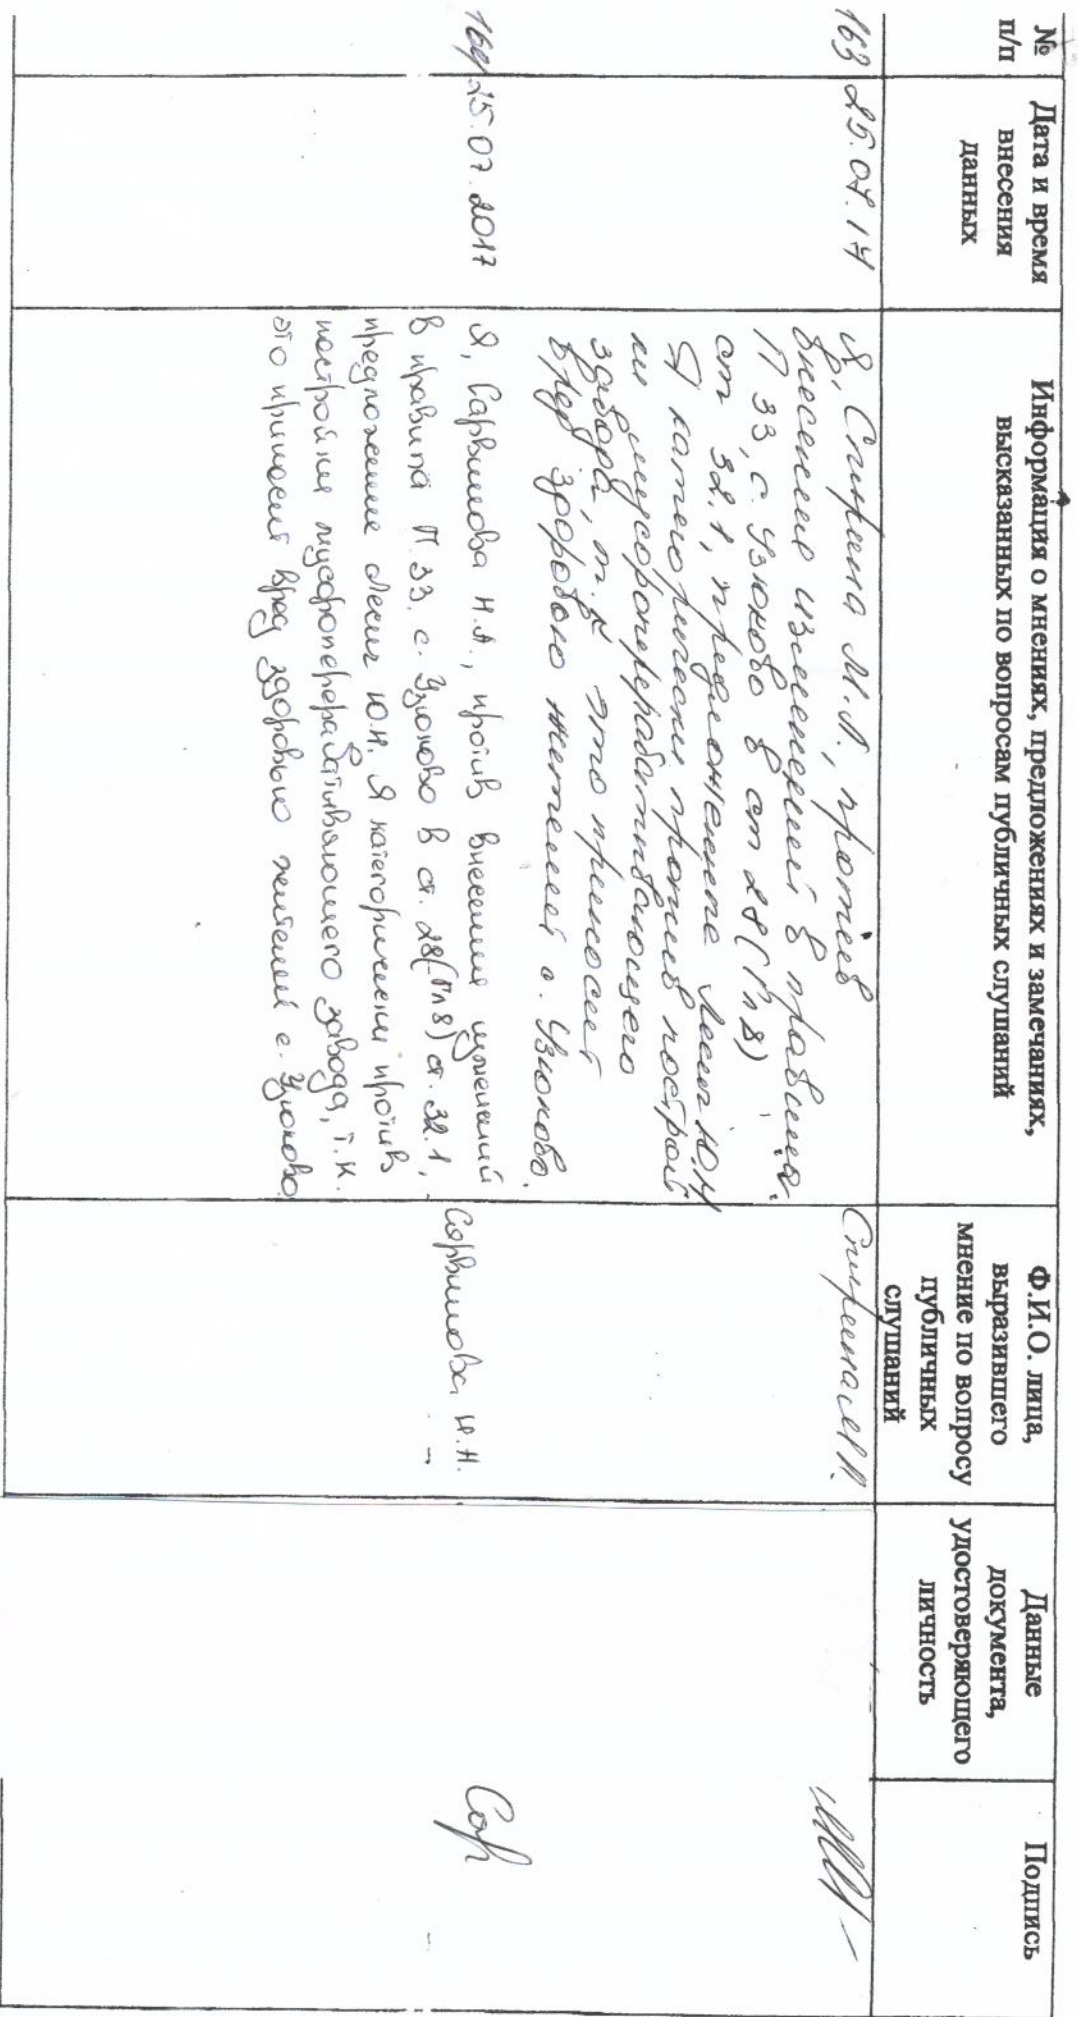 №
п/п
Дата и время
внесения
данных
Информация о мнениях, предложениях и замечаниях,
высказанных по вопросам публичных слушаний
Ф.И.О. лица,
выразившего
мнение по вопросу
публичных
слушаний
Данные
документа,
удостоверяющего
личность
Подпись
163
25.07.17
Я, Спирина М.Л., против
внесение изменений в правила
П 33, с. Узюково в ст 28 (Гп 8)
ст 32.1, предложенные Лесиг Ю.Н
Я категорически против построй
ки мусороперерабатывающего
завода, т.к это приносит
вред здоровью жителей с. Узюково.
Спирина М.Л.
164
25.07.2017
Я, Сарвилова Н.А., против внесения изменений
в правила П.33. с. Узюково в ст. 28(Гп 8) ст. 32.1,
предложение Лесиг Ю.Н. Я категорически против
постройки мусороперерабатывающего завода, т.к.
это приносит вред здоровью жителей с. Узюково
Сарвилова Н.А.
Сар